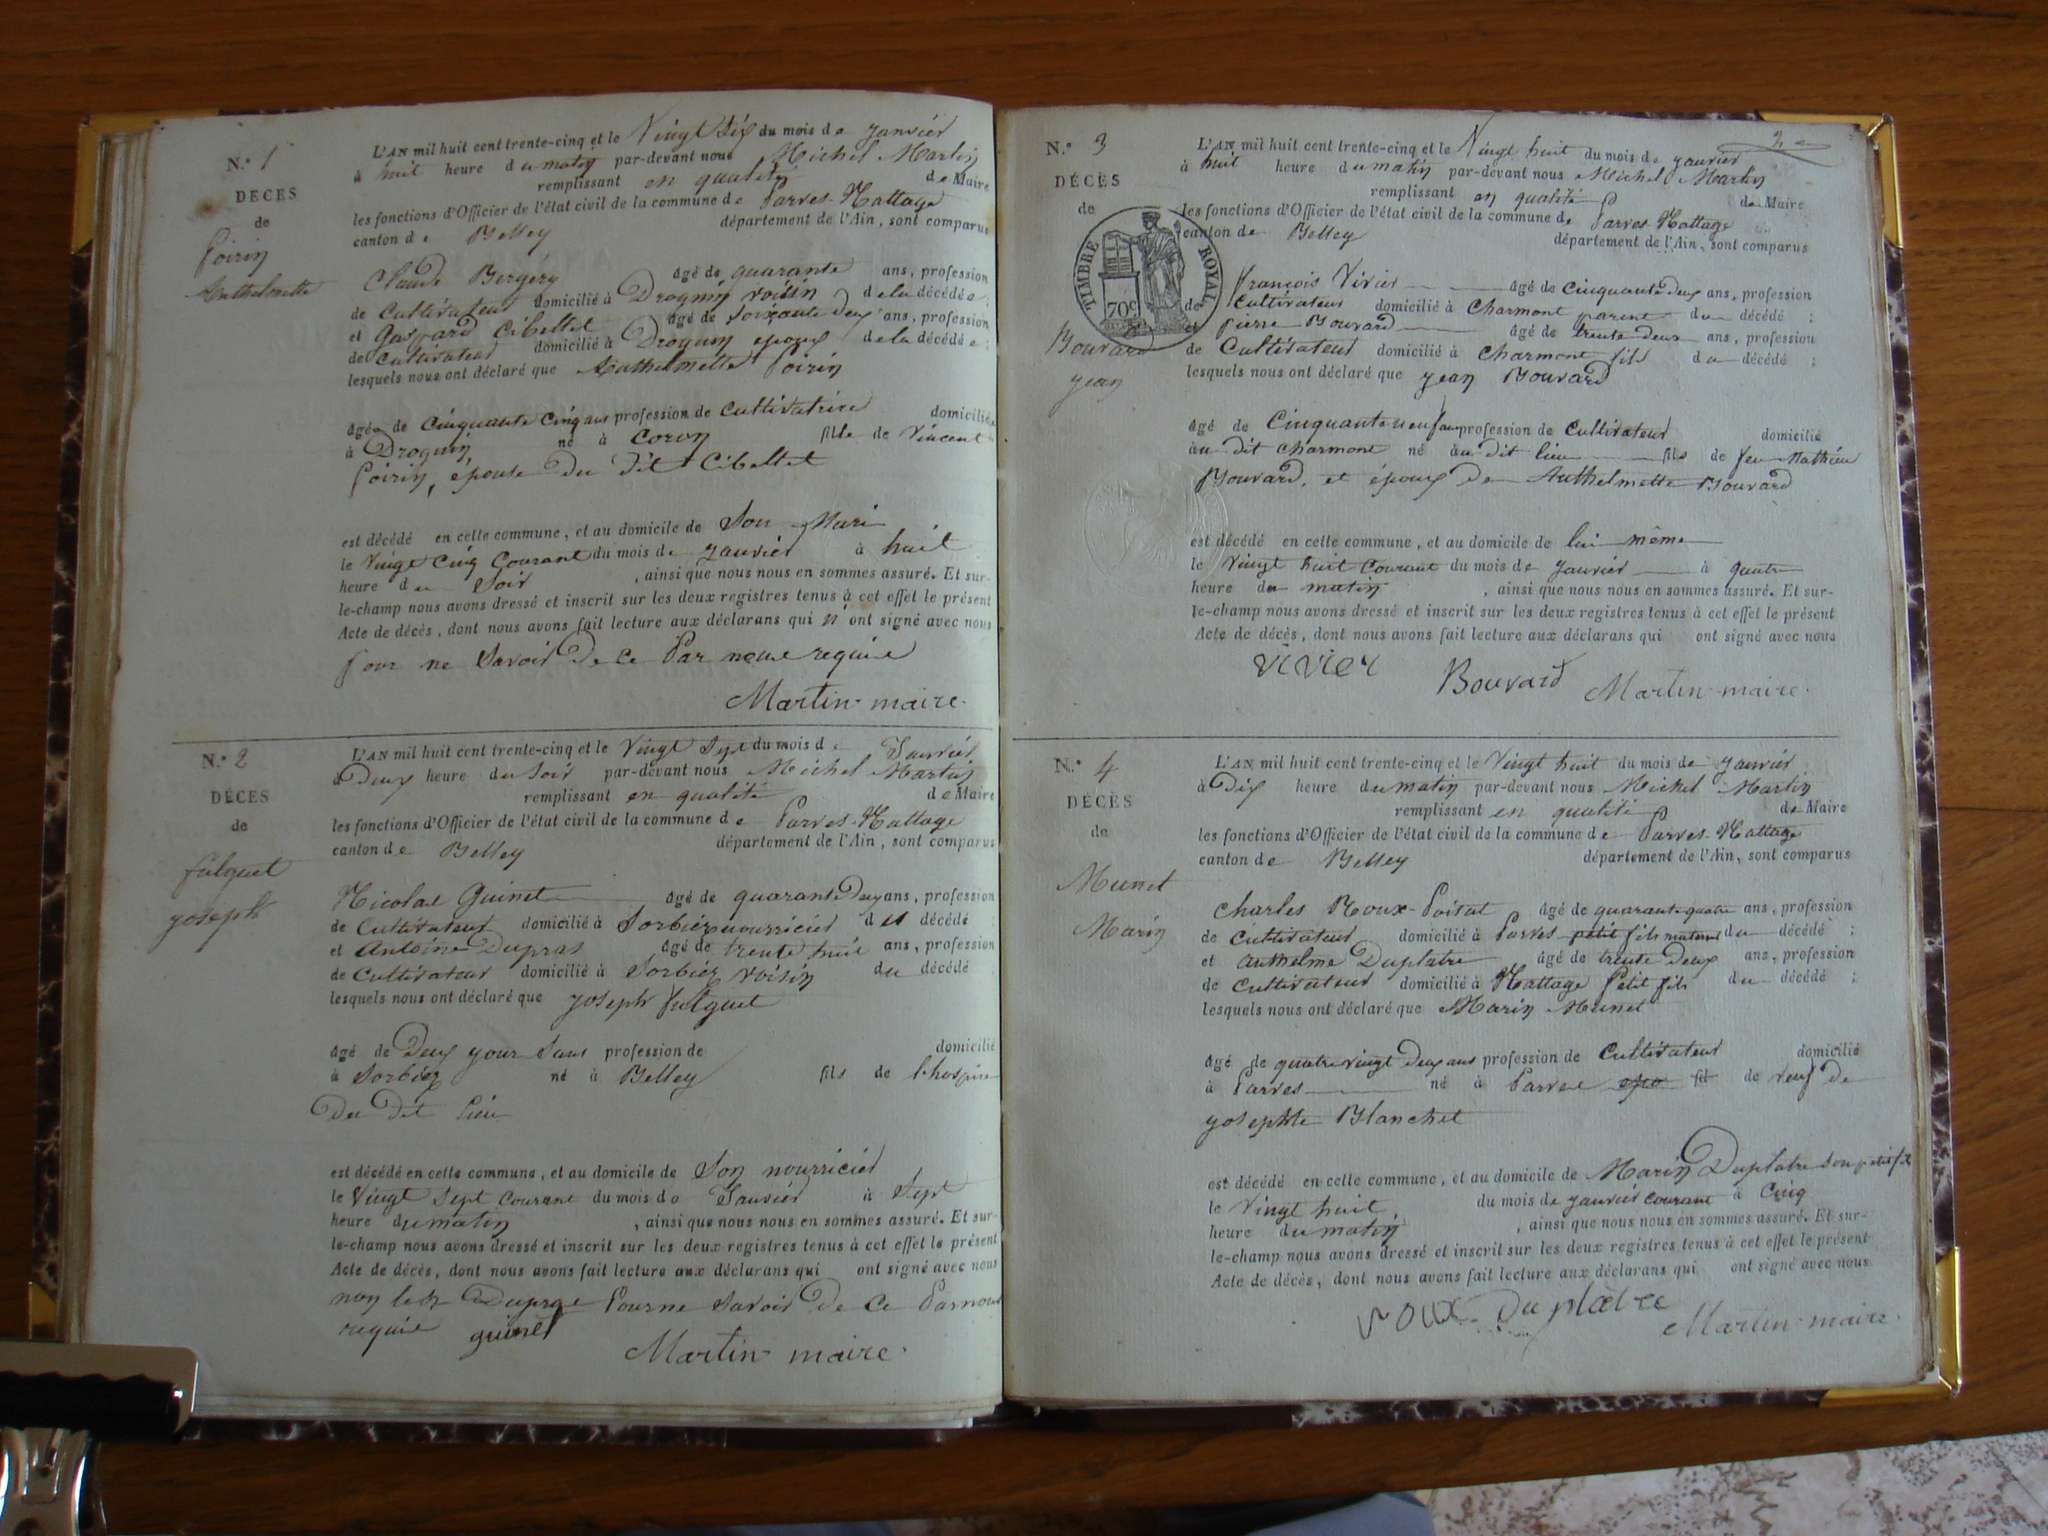 N.° 1
DÉCÈS
de
Poirin
Anthelmette
L'AN mil huit cent trente-cinq et le Vingt Six du mois de Janvier
à huit heure du matin par-devant nous Michel Martin
remplissant en qualité de Maire
les fonctions d'Officier de l'état civil de la commune de Parves-Nattage
canton de Belley département de l'Ain, sont comparus
Claude Bergery âgé de quarante ans, profession
de Cultivateur domicilié à Drognin voisin de la décédée;
et Gaspard Cibellet âgé de soixante deux ans, profession
de Cultivateur domicilié à Drognin epoux de la décédée;
lesquels nous ont déclaré que Anthelmette Poirin
âgé de Cinquante Cinq ans profession de Cultivatrice domicilié
à Drognin, né à Coron fille de Vincent
Poirin, epouse du dit Cibellet
est décédé en cette commune, et au domicile de Son Mari
le Vingt Cinq Courant du mois de Janvier à huit
heure du Soir , ainsi que nous nous en sommes assuré. Et sur-
le-champ nous avons dressé et inscrit sur les deux registres tenus à cet effet le présent
Acte de décès, dont nous avons fait lecture aux déclarans qui n' ont signé avec nous
pour ne Savoir De ce Par nous requie
Martin maire.
N.° 2
DÉCES
de
fulquet
joseph
L'AN mil huit cent trente-cinq et le Vingt Sept du mois de Janvier
à Deux heure du Soir par-devant nous Michel Martin
remplissant en qualité de Maire
les fonctions d'Officier de l'état civil de la commune de Parves-Nattage
canton de Belley département de l'Ain, sont comparus
Nicolas Guinet âgé de quarante Deux ans, profession
de Cultivateur domicilié à Sorbier nourricier du décédé
et Antoine Dupras âgé de trente huit ans, profession
de Cultivateur domicilié à Sorbier voisin du décédé
lesquels nous ont déclaré que joseph fulquet
âgé de Deux jour Sans profession de domicilié
à Sorbier né à Belley fils de l'hospice
Du Dit Lieu
est décédé en cette commune, et au domicile de Son nourricier
le Vingt Sept Courant du mois de Janvier à Sept
heure du matin , ainsi que nous nous en sommes assuré. Et sur-
le-champ nous avons dressé et inscrit sur les deux registres tenus à cet effet le présent
Acte de décès, dont nous avons fait lecture aux déclarans qui ont signé avec nous
non Pour ne Savoir De Ce Par nous
requie guinet
Martin maire.
2
N.° 3
DÉCÈS
de
TIMBRE ROYAL
70c
Bouvard
jean
L'AN mil huit cent trente-cinq et le Vingt huit du mois de janvier
à huit heure du matin par-devant nous Michel Martin
remplissant en qualité de Maire
les fonctions d'Officier de l'état civil de la commune de Parves-Nattage
canton de Belley département de l'Ain, sont comparus
François Vivier âgé de cinquante deux ans, profession
de Cultivateur domicilié à Charmont parent du décédé;
et Pierre Bouvard âgé de trente deux ans, profession
de Cultivateur domicilié à Charmont fils du décédé;
lesquels nous ont déclaré que jean Bouvard
âgé de Cinquante neuf ans profession de Cultivateur domicilié
au dit Charmont né au dit lieu fils de feu Mathieu
Bouvard, et époux de Anthelmette Bouvard
est décédé en cette commune, et au domicile de lui même
le Vingt huit Courant du mois de Janvier à quatre
heure du matin , ainsi que nous nous en sommes assuré. Et sur-
le-champ nous avons dressé et inscrit sur les deux registres tenus à cet effet le présent
Acte de décès, dont nous avons fait lecture aux déclarans qui ont signé avec nous
ViVier Bouvard Martin maire.
N.° 4
DÉCÈS
de
Munet
Marin
L'AN mil huit cent trente-cinq et le Vingt huit du mois de Janvier
à Dix heure du matin par-devant nous Michel Martin
remplissant en qualité de Maire
les fonctions d'Officier de l'état civil de la commune de Parves-Nattage
canton de Belley département de l'Ain, sont comparus
Charles Roux-Poitat âgé de quarante quatre ans, profession
de Cultivateur domicilié à Parves petit fils du décédé;
et Anthelme Duplatre âgé de trente Deux ans, profession
de Cultivateur domicilié à Nattage Petit fils du décédé;
lesquels nous ont déclaré que Marin Munet
âgé de quatre vingt Deux ans profession de Cultivateur domicilié
à Parves né à Parves epo fil de veuf de
Josephte Blanchet
est décédé en cette commune, et au domicile de Marin Duplatre Son petit fils
le Vingt huit, du mois de janvier courant à Cinq
heure du matin , ainsi que nous nous en sommes assuré. Et sur-
le-champ nous avons dressé et inscrit sur les deux registres tenus à cet effet le présent
Acte de décès, dont nous avons fait lecture aux déclarans qui ont signé avec nous
roux Duplatre Martin maire.